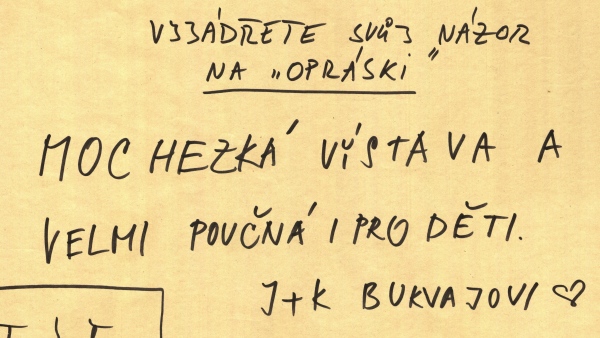 VYJÁDŘETE SVŮJ NÁZOR
NA „OPRÁSKI“
MOC HEZKÁ VÍSTAVA A
VELMI POUČNÁ I PRO DĚTI.
J+K BUKVAJOVI ♡